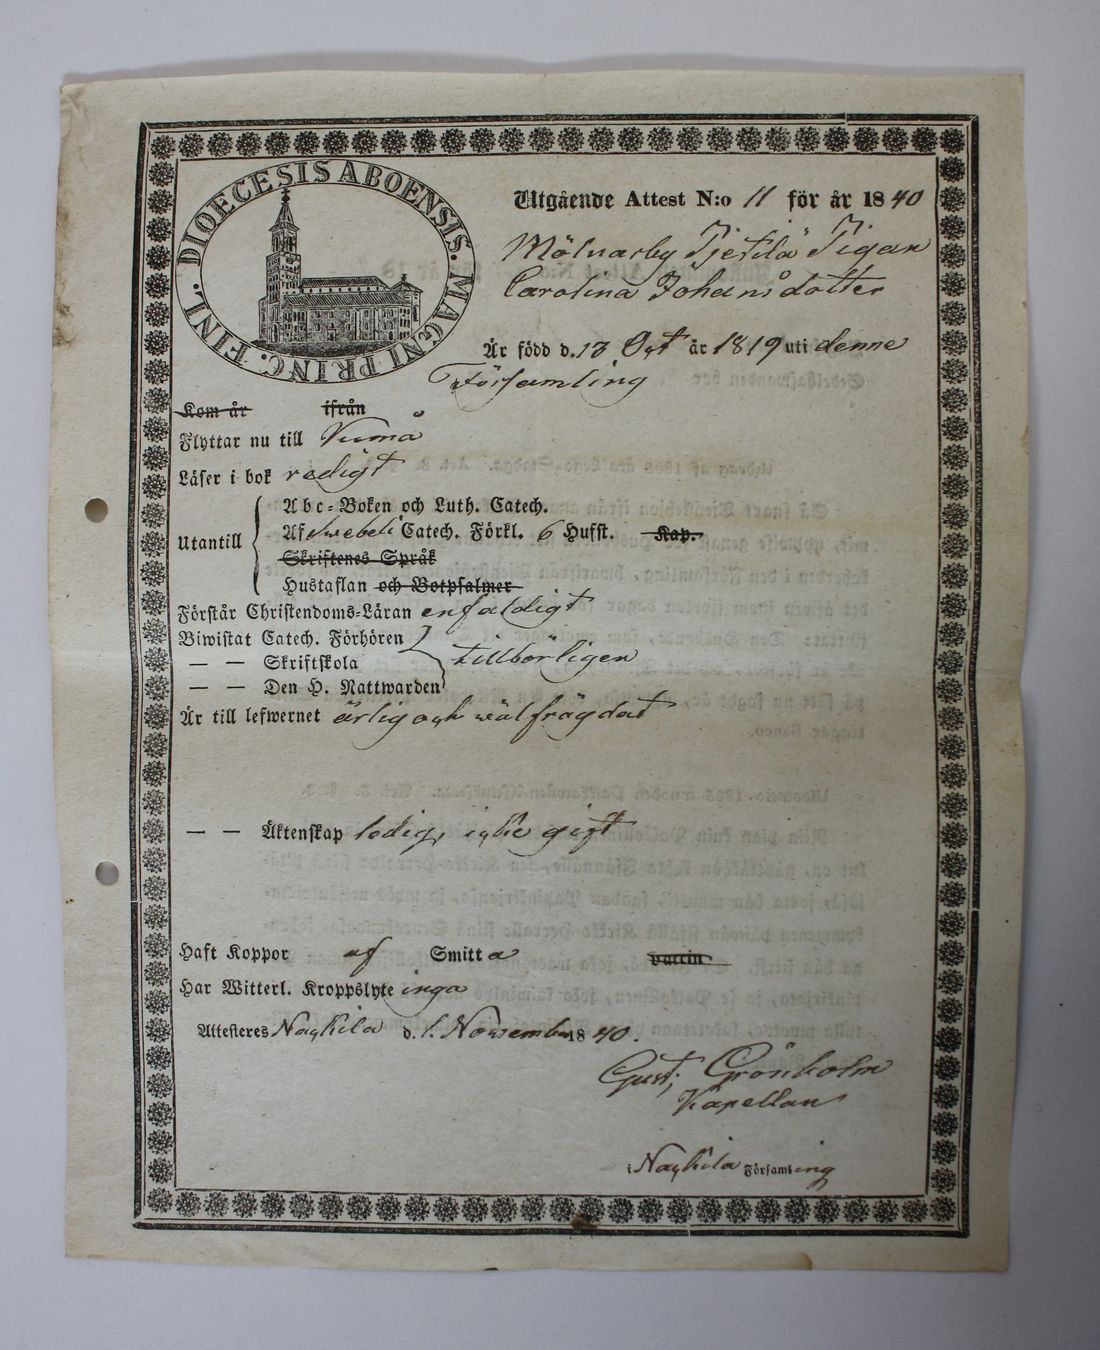 DIOECESIS ABOENSIS. MAGNI PRINC. FINL.
Utgående Attest N:o 11 för år 1840
Mölnarby
Carolina Johansdotter
Är född d. 13 Oct år 1819 uti denne
Församling
Kom år ifrån
Flyttar nu till Viemå
Läser i bok redigt
Utantill
Abc-Boken och Luth. Catech.
Af Swebeli Catech. Förkl. 6 Hufst. Kap.
Skriftenes Språk
Hustaflan och Botpsalmer
Förstår Christendoms-Läran enfaldigt
Biwistat Catech. Förhören
— — Skriftskola tillbörligen
— — Den H. Nattwarden
Är till lefwernet ärlig och wälfrägdat
— — Äktenskap ledig, icke gift
Haft Koppor af Smitta
Har Witterl. Kroppslyte inga
Attesteres Nackila d. 1. November 1840.
Gust; Grönholm
Kapellan
i Nackila Församling